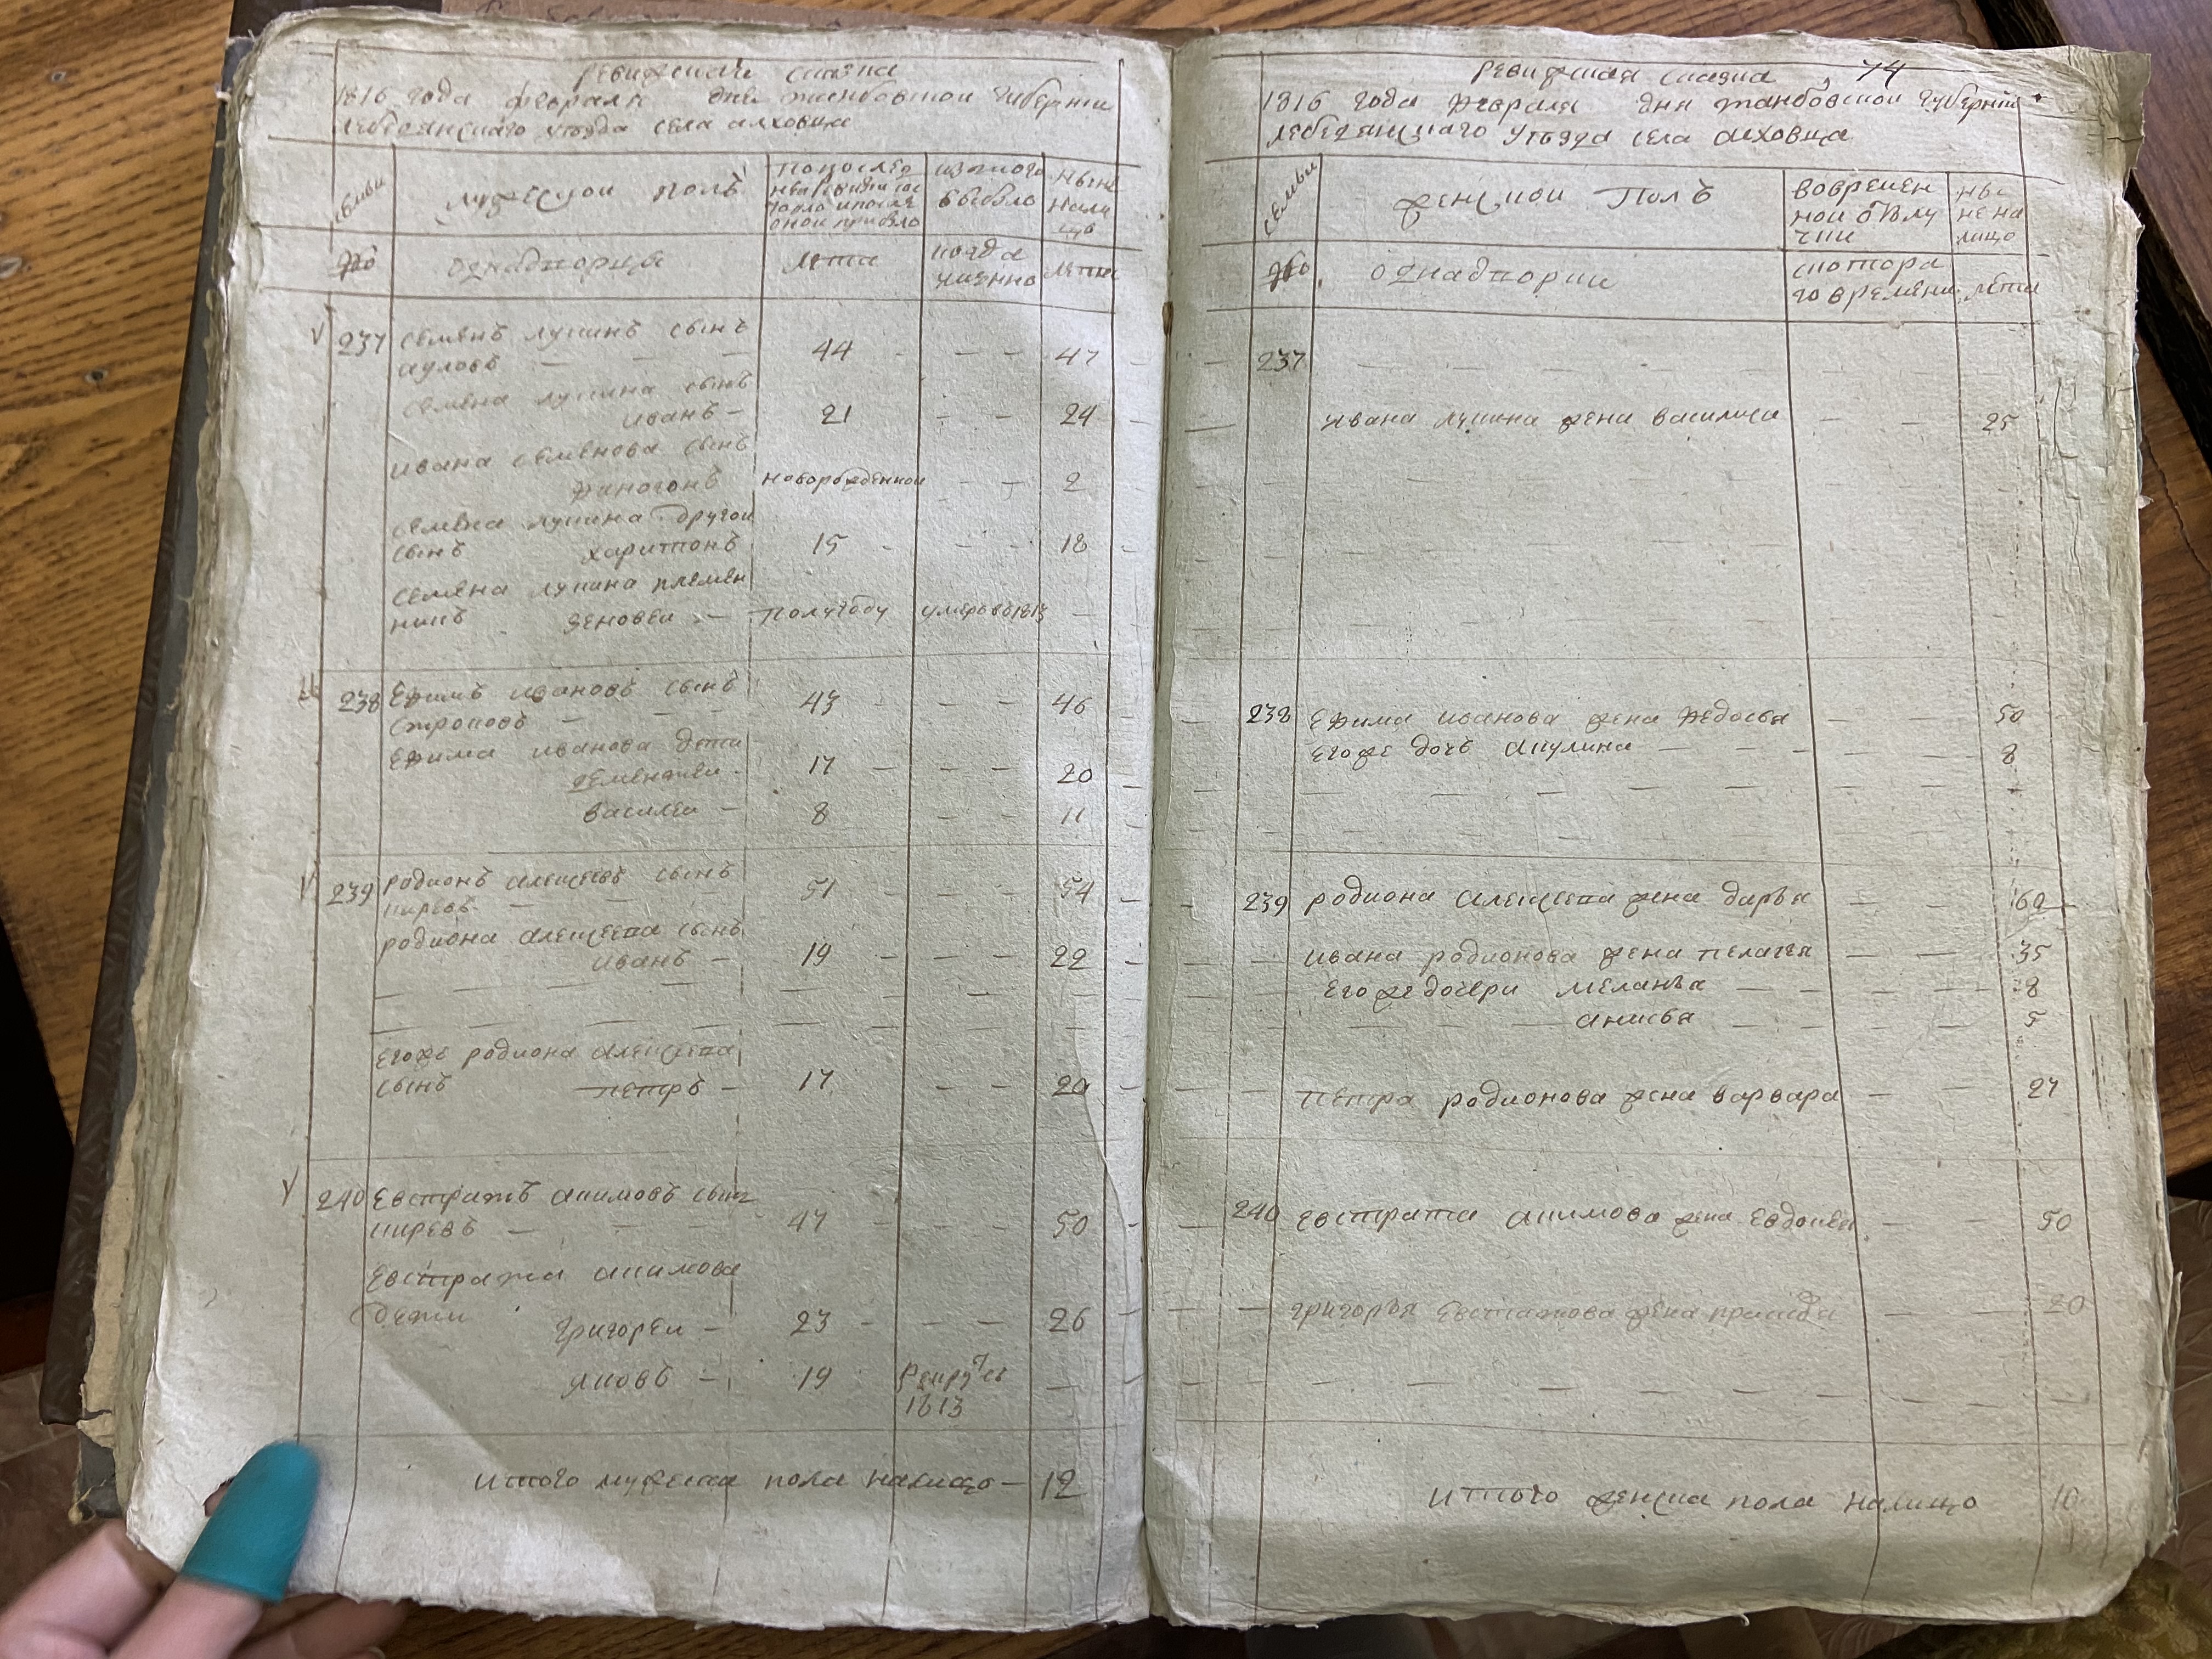 ревижская сказка
1816 года февраля дня танбовской губернии
лебедянскаго уъзда села алховца
семьи
мужескои полъ
попослед
ней ревизии сос
тояло и после
оной прибыло
изтого
выбыло
ныне
нали
цо
№
однадворцы
лета
когда
имянно
лета
237
семенъ лукинъ сынъ
ауловъ — — —
44
— —
47
семена лукина сынъ
иванъ —
21
— —
24
ивана семенова сынъ
финогенъ
новорожденнои
— —
2
семена лукина другои
сынъ харитонъ
15
— —
18
семена лукина племен
никъ зеновеи —
полугоду
умеръ въ 1813
—
238
Ефимъ ивановъ сынъ
строковъ — — —
43
— —
46
Ефима иванова дети
дементеи —
17
— —
20
василеи —
8
— —
11
239
родионъ алексеевъ сынъ
киревъ — — —
51
— —
54
родиона алексеева сынъ
иванъ —
19
— —
22
Егоже родиона алексеева
сынъ петръ —
17
— —
20
240
Евстратъ акимовъ сынъ
киревъ — — —
47
— —
50
Евстрата акимова
дети
григореи —
23
— —
26
яковъ —
19
рекрутъ
1813
—
итого мужеска пола налицо — 12
ревижская сказка 74
1816 года февраля дня танбовской губернии
лебедянскаго уъзда села алховца
семьи
женскои полъ
вовремен
нои отлу
чки
ны
не на
лицо
№
однадворки
скотора
го времяни
лета
237
ивана лукина жена василиса — — 25
238 Ефима иванова жена федосья — — 50
егоже дочь акулина — — 8
239 родиона алексеева жена дарья — — 60
ивана родионова жена пелагея — — 35
Егоже дочери меланья — — 8
анисья — — 5
петра родионова жена варвара — — 27
240 евстрата акимова жена Евдокея — — 50
григорья Евстратова жена — — 20
итого женска пола налицо 10